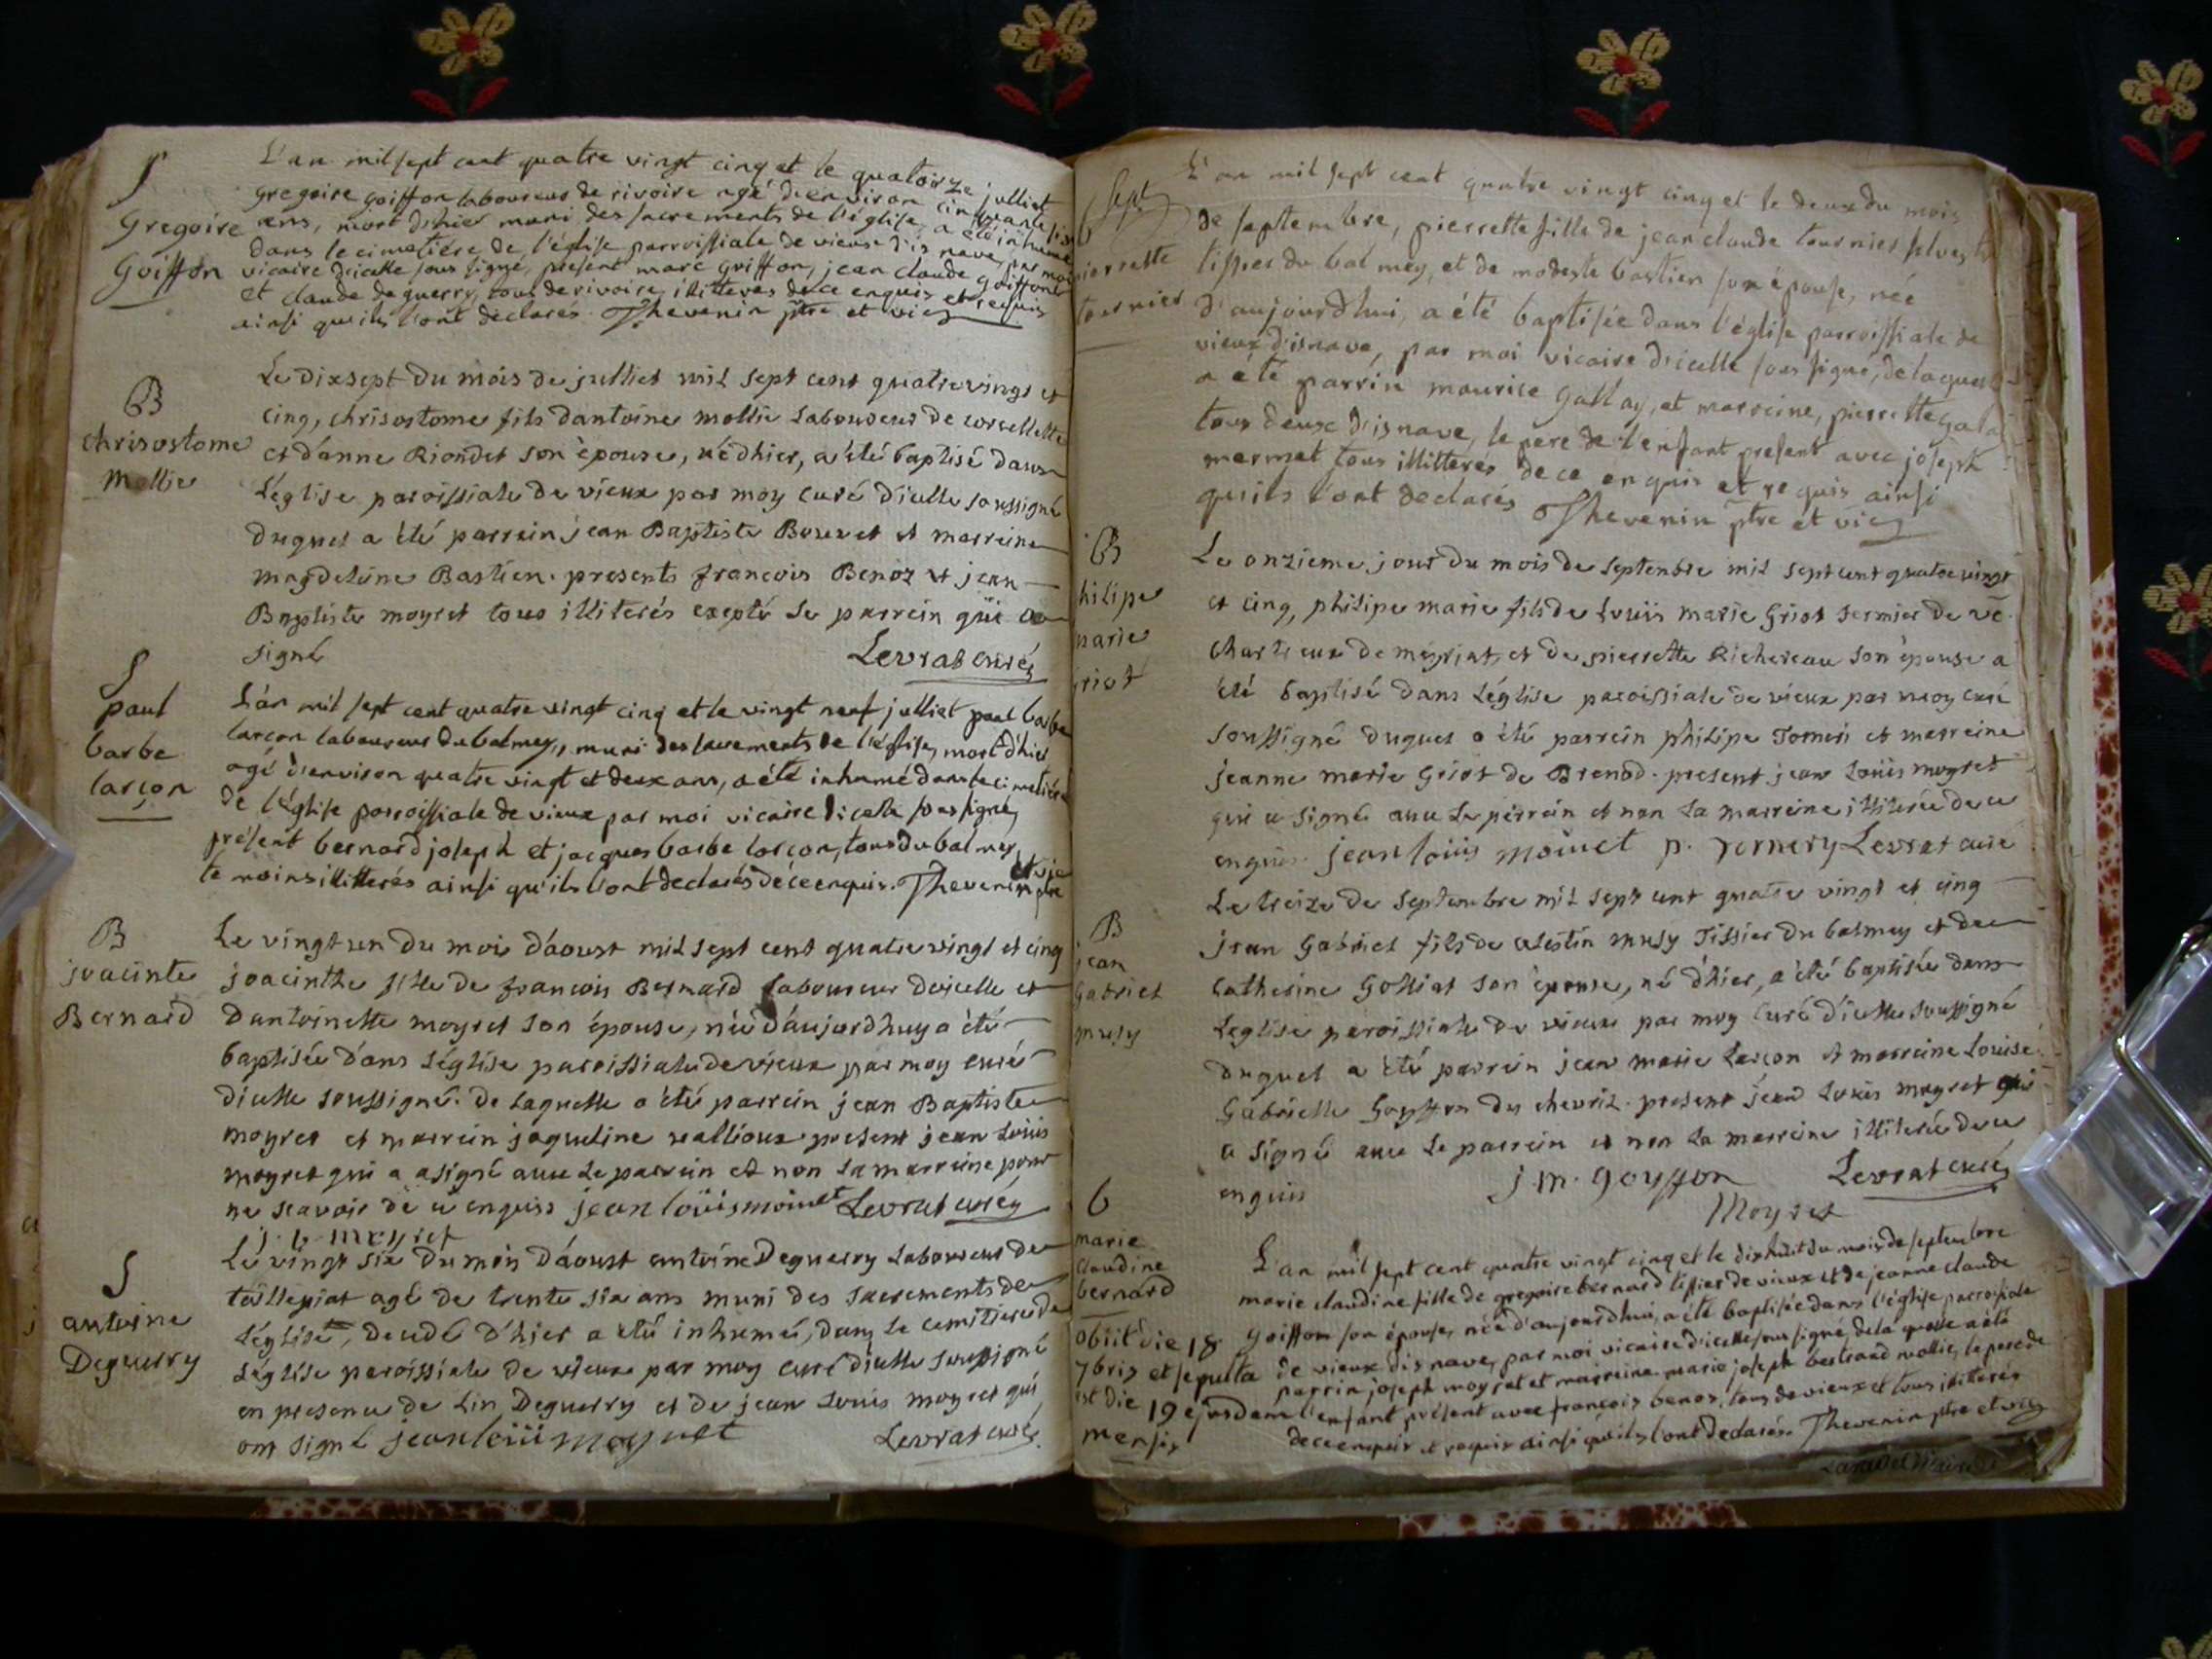 S
Gregoire
Goiffon
L'an mil sept cent quatre vingt cinq et le quatorze julliet
gregoire goiffon laboureur de rivoire agé d'environ cinquante six
ans, mort d'hier muni des sacrements de l'église, a été inhumé
dans le cimetiére de l'église parroissiale de vieux d'isnave, par moi
vicaire d'icelle sous signé, présent marc goiffon, jean claude goiffon
et claude deguerry, tous de rivoire, illiteres de ce enquis et requis
ainsi qu'ils l'ont declarés. Thevenin ptre et vic
B
chrisostome
Mollie
Le dixsept du mois de julliet mil sept cent quatrevingt et
cinq, chrisostome fils dantoine mollie Laboureur de corcellette
et d'anne Riondet son épouse, né d'hier, a été baptisé dans
Léglise paroissiale de vieux par moy curé d'icelle soussigné
duquel a été parrein jean Baptiste Bouvet et marreine
magdeleine Bastien. presents francois Benoz et jean
Baptiste moyret tous illiterés exepté le parrein qui a
signé
Levrat curé
S
paul
barbe
larçon
L'an mil sept cent quatre vingt cinq et le vingt neuf julliet paul barbe
larçon laboureur du balmey, muni des sacrements de l'église, mort d'hier
agé d'environ quatre vingt et deux ans, a été inhumé dans le cimetiére
de l'église parroissiale de vieux par moi vicaire d'icelle sous signé,
présent bernard joseph et jacques barbe larçon, tous du balmey,
témoins illitterés ainsi qu'ils l'ont declarés de ce enquis. Thevenin ptre
et vic
B
joacinte
Bernard
Le vingt un du mois d'aoust mil sept cent quatre vingt et cinq
joacinthe fille de francois Bernard Laboureur dicelle et
Dantoinette moyret son épouse, née d'aujordhuy a été
baptisée d'ans Léglise paroissiale de vieux par moy curé
dicelle soussigné. de Laquelle a été parrein jean Baptiste
moyret et marrein jaqueline vallioux present jean Louis
moyret qui a asigné avec Le parrein et non La marreine pour
ne scavoir de ce enquis jean loüis moiret Levrat curé
j. b. meyret
S
antoine
Deguerry
Le vingt six du mois d'aoust antoine Deguerry Laboureur de
taillepiat agé de trente six ans muni des sacrements de
Léglise, decedé d'hier a été inhumé, dans Le cemitiere de
Léglise paroissiale de vieux par moy curé dicelle soussigné
en presence de Lin Deguerry et de jean Louis moyret qui
ont signé jean loüi moyret
Levrat curé
Sept
b
pierrette
tournier
L'an mil sept cent quatre vingt cinq et le deux du mois
de septembre, pierrette fille de jean claude tournier
tissier du balmey, et de modeste bastien son épouse, née
d'aujourdhui, a été baptisée dans l'église parroissiale de
vieux d'isnave, par moi vicaire d'icelle sous signé, de laquelle
a été parrin maurice gallay, et marreine, pierrette
tous deux d'isnave, le pere de l'enfant present avec joseph
mermet tous illitterés de ce enquis et requis ainsi
qu'ils l'ont declarés Thevenin ptre et vic
B
hilipe
marie
griot
Le onzieme jour du mois de septembre mil sept cent quatre vingt
et cinq, philipe marie fils de Louis marie Griot fermier de vé.
Chartreux de meyriat, et de pierrette Richereau son épouse a
été baptisé dans Léglise paroissiale de vieux par moy curé
soussigné duquel a été parrein philipe et marreine
jeanne marie Griot de Brenod. present jean Louis moyret
qui a signé avec Le parrein et non La marreine illiterée de ce
enquis. jean loüis moiret p. Levrat curé
B
jean
Gabriel
musy
Le treize de septembre mil sept cent quatre vingt et cinq
jean Gabriel fils de celestin musy Tissier du balmey et de
Catherine Golliat son épouse, né d'hier, a été baptisée dans
Léglise paroissiale de vieux par moy curé d'icelle soussigné
duquel a été parrein jean marie Larçon et marreine Louise
Gabrielle Goyffon du chevril. present jean Louis moyret qui
a signé avec Le parrein et non La marreine illiterée de ce
enquis
j m. goyffon Levrat curé
Moyret
b
marie
claudine
bernard
obiit die 18
7bris et sepulta
est die 19 ejusdem
mensis
L'an mil sept cent quatre vingt cinq et le dixhuit du mois de septembre
marie claudine fille de gregoire bernard tissier de vieux et de jeanne claude
goiffon son épouse, née d'aujourdhui, a été baptisée dans l'église parroissiale
de vieux disnave, par moi vicaire d'icelle sous signé, de la quelle a été
parrin joseph moyret et marreine marie joseph bertrand mollie, le pere de
l'enfant présent avec françois benos, tous de vieux et tous illiterés
de ce enquis et requis ainsi qu'ils l'ont declarés. Thevenin ptre et vic